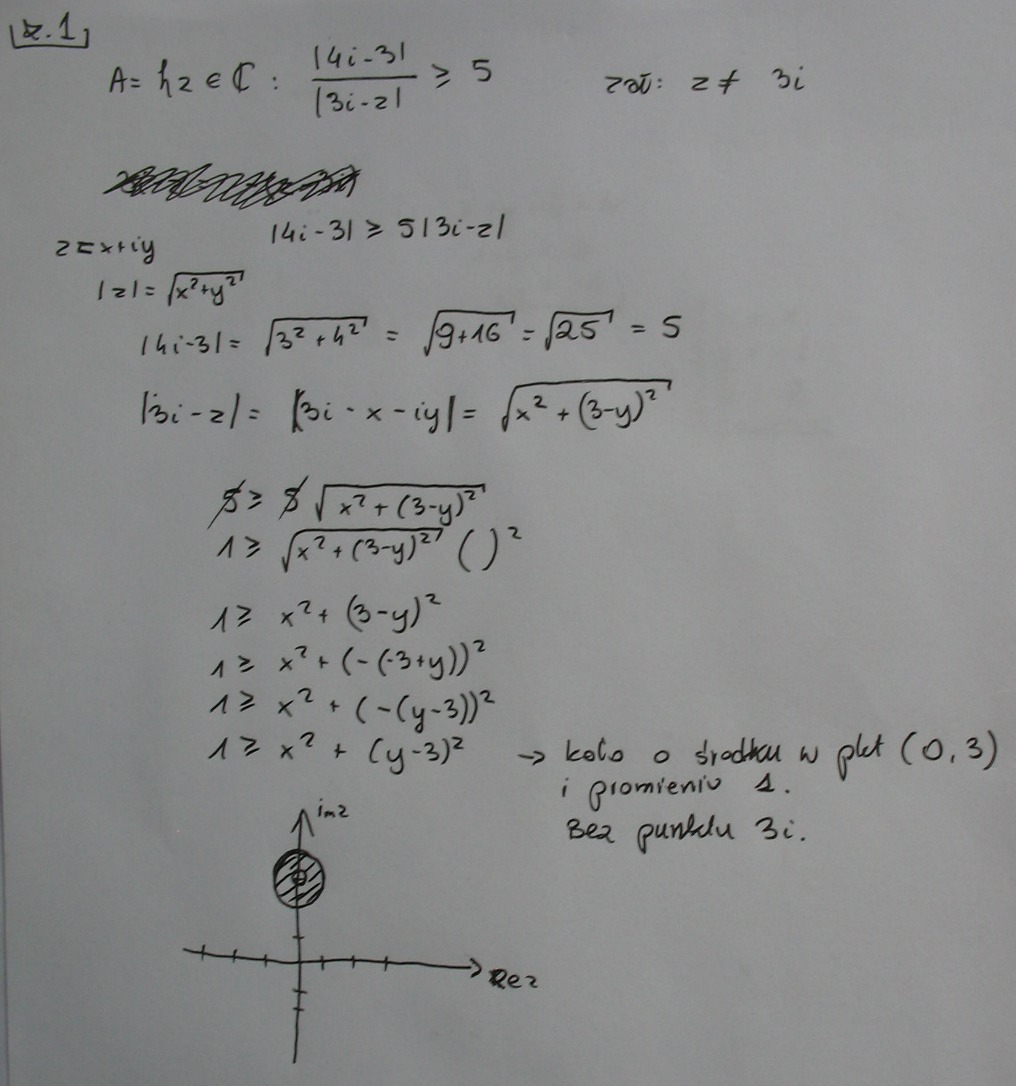 z.1
A = { z ∈ ℂ : |4i-3| / |3i-z| ≥ 5    zał: z ≠ 3i
|4i-3| ≥ 5|3i-z|
z=x+iy
|z| = √(x²+y²)
|4i-3| = √(3²+4²) = √(9+16) = √25 = 5
|3i-z| = |3i - x - iy| = √(x² + (3-y)²)
5 ≥ 5 √(x² + (3-y)²)
1 ≥ √(x² + (3-y)²) ( )²
1 ≥ x² + (3-y)²
1 ≥ x² + (-(-3+y))²
1 ≥ x² + (-(y-3))²
1 ≥ x² + (y-3)² → koło o środku w pkt (0,3)
i promieniu 1.
Bez punktu 3i.
imz
Rez